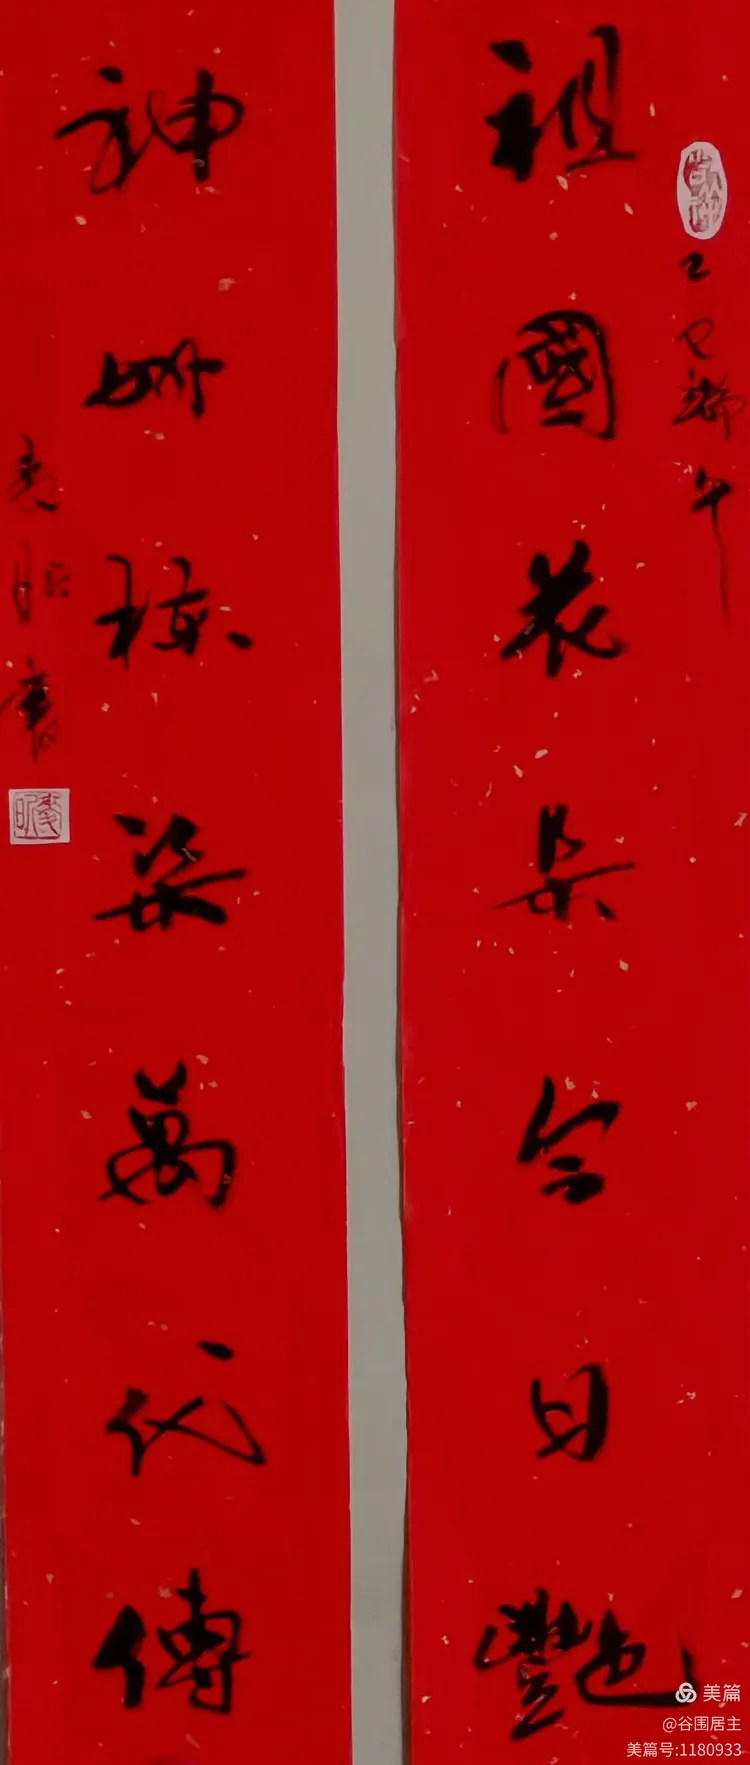 乙巳端午
祖國花朵今日艷
神州栋梁萬代傳
書
美篇
@谷围居主
美篇号:1180933